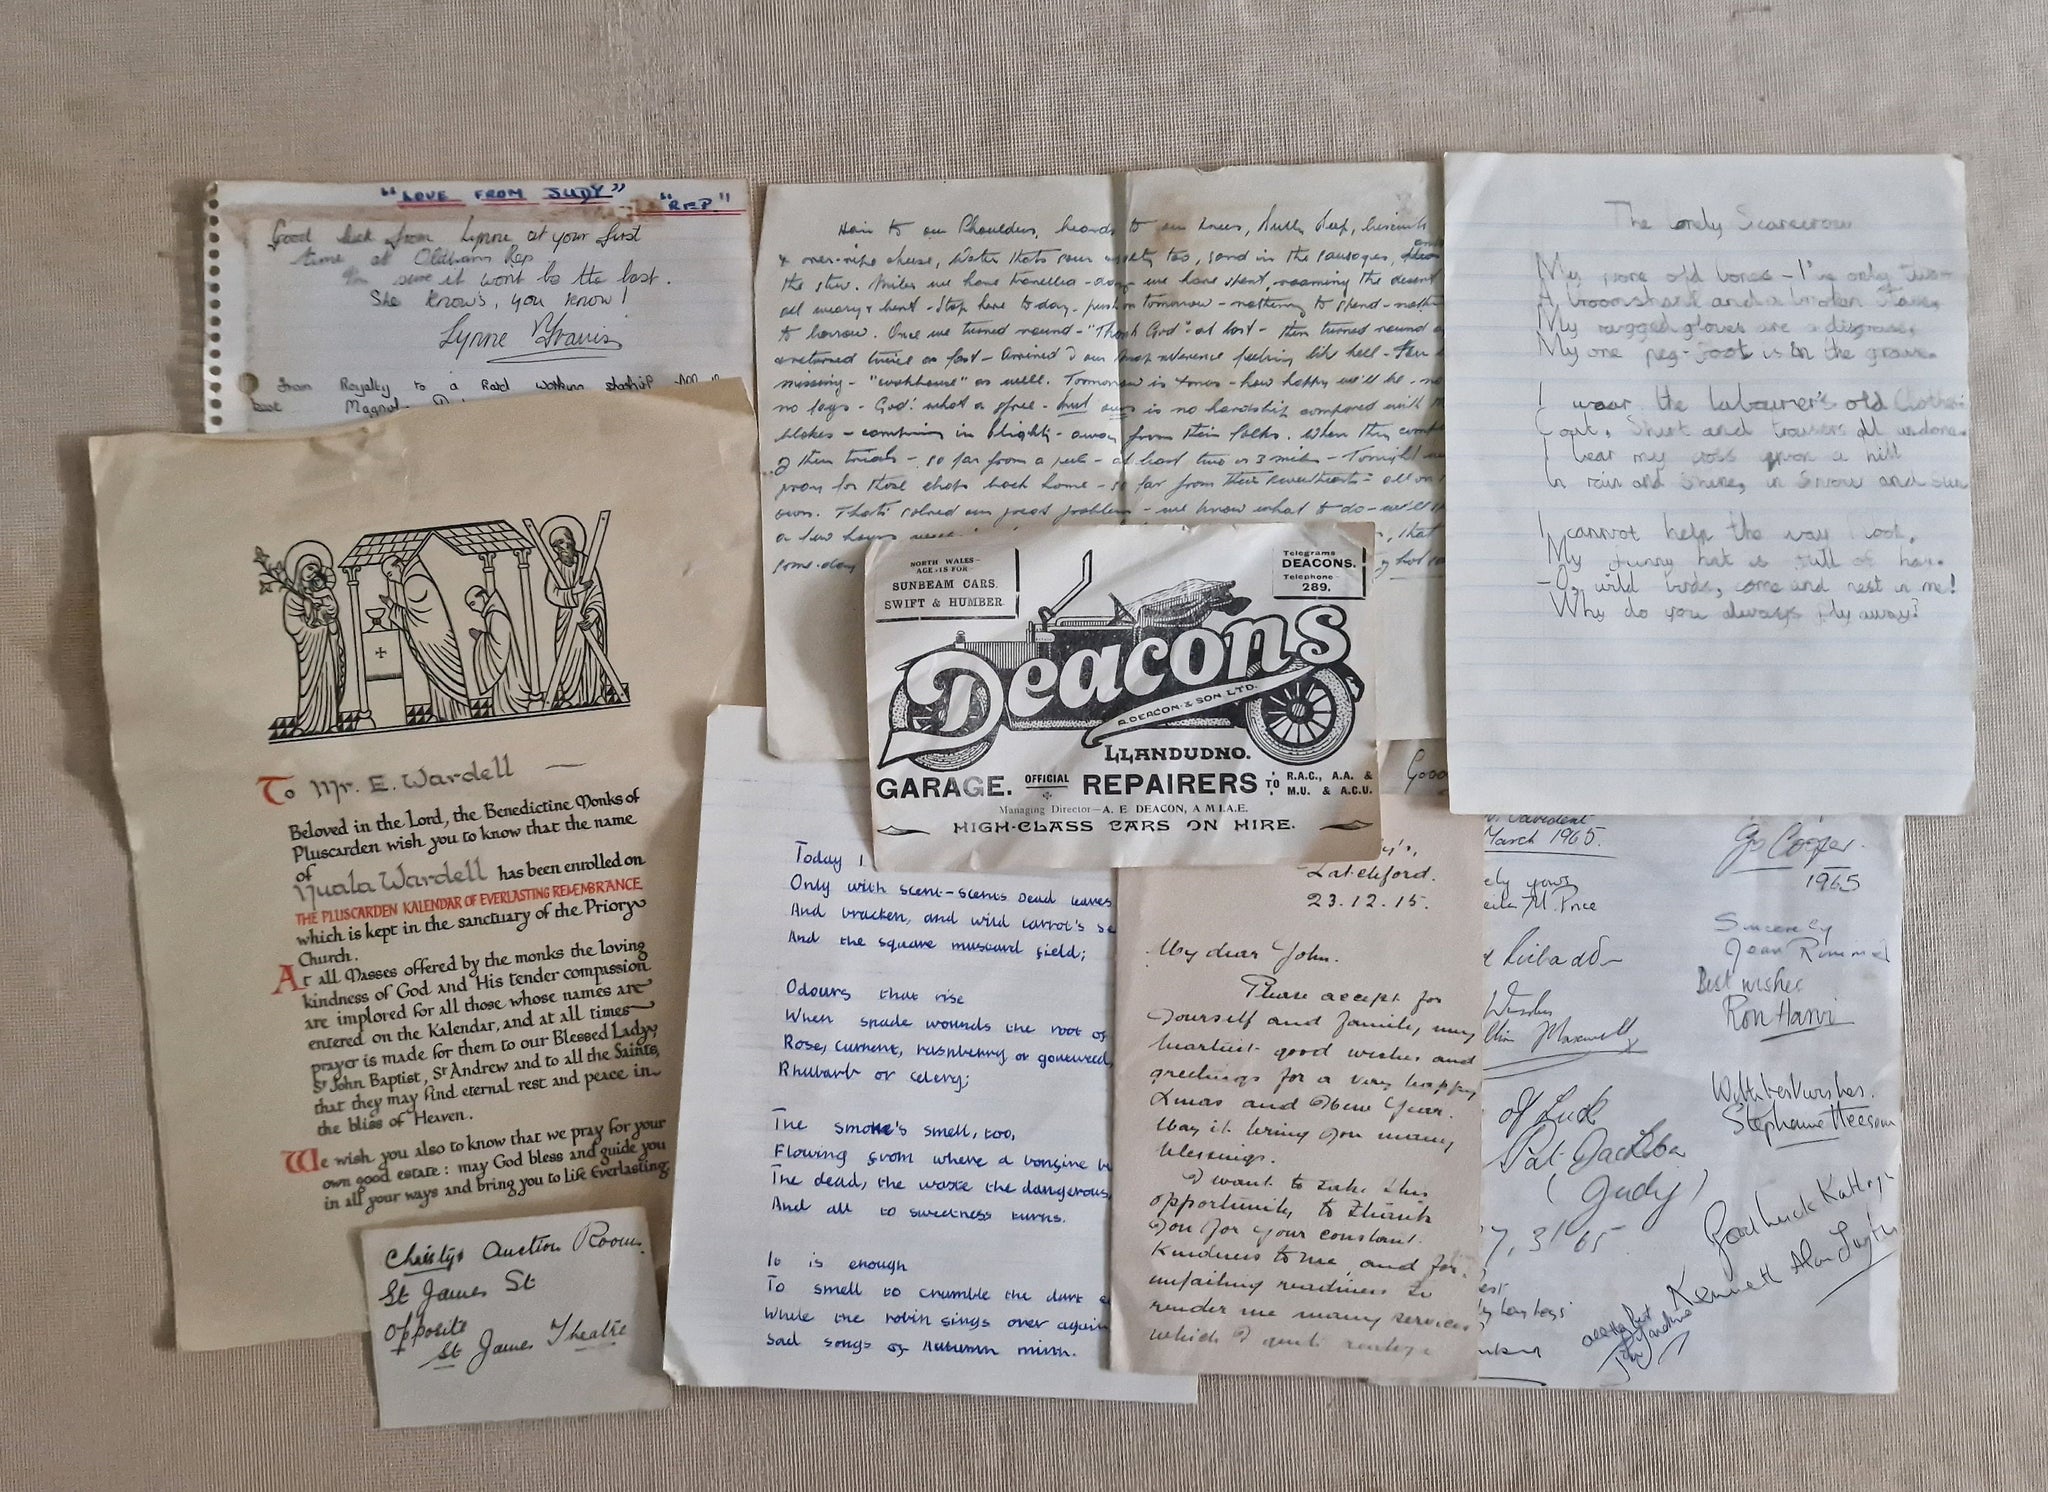 "LOVE FROM JUDY"
"REP"
Good luck from Lynne at your first
time at Oldham Rep
I'm sure it wont be the last.
She knows, you know!
Lynne
from Royalty to a Raid
but
To Mr. E. Wardell
Beloved in the Lord, the Benedictine Monks of
Pluscarden wish you to know that the name
of
Nuala Wardell has been enrolled on
THE PLUSCARDEN KALENDAR OF EVERLASTING REMEMBRANCE
which is kept in the sanctuary of the Priory
Church.
At all Masses offered by the monks the loving
kindness of God and His tender compassion
are implored for all those whose names are
entered on the Kalendar, and at all times
prayer is made for them to our Blessed Lady,
St John Baptist, St Andrew and to all the Saints,
that they may find eternal rest and peace in
the bliss of Heaven.
We wish you also to know that we pray for your
own good estate: may God bless and guide you
in all your ways and bring you to Life Everlasting
Christys Auction Rooms
St James St
Opposite
St James Theatre
Hair to our Shoulders, beards to our knees, Bully Beef, biscuits
& over-ripe cheese, Water thats sour, sand in the sausages,
the stew. Miles we have travelled - days we have spent, roaming the desert
all weary & bent - Stop here to-day - push on tomorrow - nothing to spend -
to borrow. Once we turned round - "Thank God" at last - then turned round
& returned twice as fast - Arrived feeling like hell -
missing - as well. Tomorrow is - how happy we'll be - no
no fags - God! what a spree - but ours is no hardship compared with
blokes - in Blighty - away from their folks. When they
of their trials - so far from a pub - at least two or 3 miles - Tonight
pray for those chaps back home - so far from their sweethearts - all on
own. That's solved our great problem - we know what to do - we'll
a few hours
that
some-day
NORTH WALES
AGENTS FOR
SUNBEAM CARS.
SWIFT & HUMBER.
Telegrams
DEACONS.
Telephone
289.
Deacons
A. DEACON & SON LTD.
LLANDUDNO.
GARAGE. OFFICIAL REPAIRERS TO R.A.C., A.A. &
M.U. & A.C.U.
Managing Director—A. E. DEACON, A.M.I.A.E.
HIGH-CLASS CARS ON HIRE.
Today I
Only with scent-scents Dead leaves
And bracken, and wild carrot's
And the square mustard field;
Odours that rise
When spade wounds the root of
Rose, currant, raspberry or goutweed,
Rhubarb or celery;
The smoke's smell, too,
Flowing from where a bonfire
The dead, the waste the dangerous,
And all to sweetness turns.
It is enough
To smell to crumble the dark
While the robin sings over again
Sad songs of Autumn mirth.
Latchford.
23.12.15.
My dear John.
Please accept for
yourself and family, my
heartiest good wishes and
greetings for a very happy
Xmas and New Year.
May it bring you many
blessings.
I want to take this
opportunity to thank
you for your constant
kindness to me, and for
unfailing readiness to
render me many services
which I
The Lonely Scarecrow
My poor old bones - I've only two -
A broomshank and a broken stave,
My ragged gloves are a disgrace,
My one peg-foot is in the grave.
I wear the labourer's old clothes:
Coat, Shirt and trousers all undone.
I bear my cross upon a hill
In rain and Shine, in Snow and sun
I cannot help the way I look,
My funny hat is full of hay.
-O, wild birds, come and nest in me!
Why do you always fly away?
March 1965.
Cooper.
1965
yours
M. Price
Sincerely
Jean
Best wishes
Ron
With best wishes.
Stephanie
of Luck
Pat
(Judy)
Good Luck Kathryn
Kenneth Alan